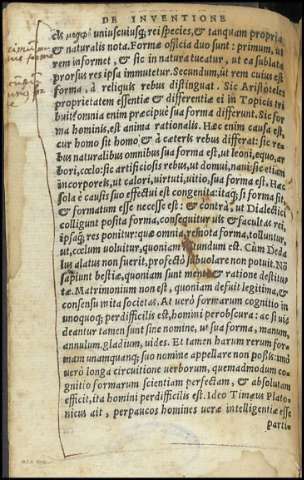 DE INVENTIONE
cuiusq́; uniuscuiusq́; rei species, & tanquam propria
& naturalis nota. Formæ officia duo sunt: primum, ut
rem informet, & sic in natura tueatur, ut ea sublata
prorsus res ipsa immutetur. Secundum, ut rem cuius est
forma, à reliquis rebus distinguat. Sic Aristoteles
proprietatem essentiæ & differentiæ ei in Topicis tri
buit: omnia enim præcipuè sua forma differunt. Sic for
ma hominis, est anima rationalis. Hæc enim causa est,
cur homo sit homo & à cæteris rebus differat: sic re
bus naturalibus omnibus sua forma est, ut leoni, equo, ar
bori, cœlo: sic artificiosis rebus, ut domui, naui: sic etiam
incorporeis, ut calori, uirtuti, uitio, sua forma est. Hæc
sola è causis suo effectui est congenita: itaq; si forma sit,
& formatum esse necesse est: & contrà, ut Dialectici
colligunt posita forma, consequitur uis & facultas rei,
ipsaq́; res ponitur: quæ omnia, remota forma, tolluntur,
ut, cœlum uoluitur, quoniam rotundum est. Cùm Deda
lus alatus non fuerit, profectò subuolare non potuit. Nō
sapiunt bestiæ, quoniam sunt mente & ratione destitu
tæ. Matrimonium non est, quoniam defuit legitima, &
consensu inita societas. At uerò formarum cognitio in
unoquoq́; perdifficilis est, homini perobscura: ac si ui=
deantur tamen sunt sine nomine, ut sua forma, manum,
annulum. gladium, uides. Et tamen harum rerum for=
mam unamquanq; suo nomine appellare non possis: imò
uerò longa circuitione uerborum, quemadmodum co=
gnitio formarum scientiam perfectam, & absolutam
efficit, ita homini perdifficilis est. Ideo Timæus Plato=
nicus ait, perpaucos homines ueræ intelligentiæ esse
parti=